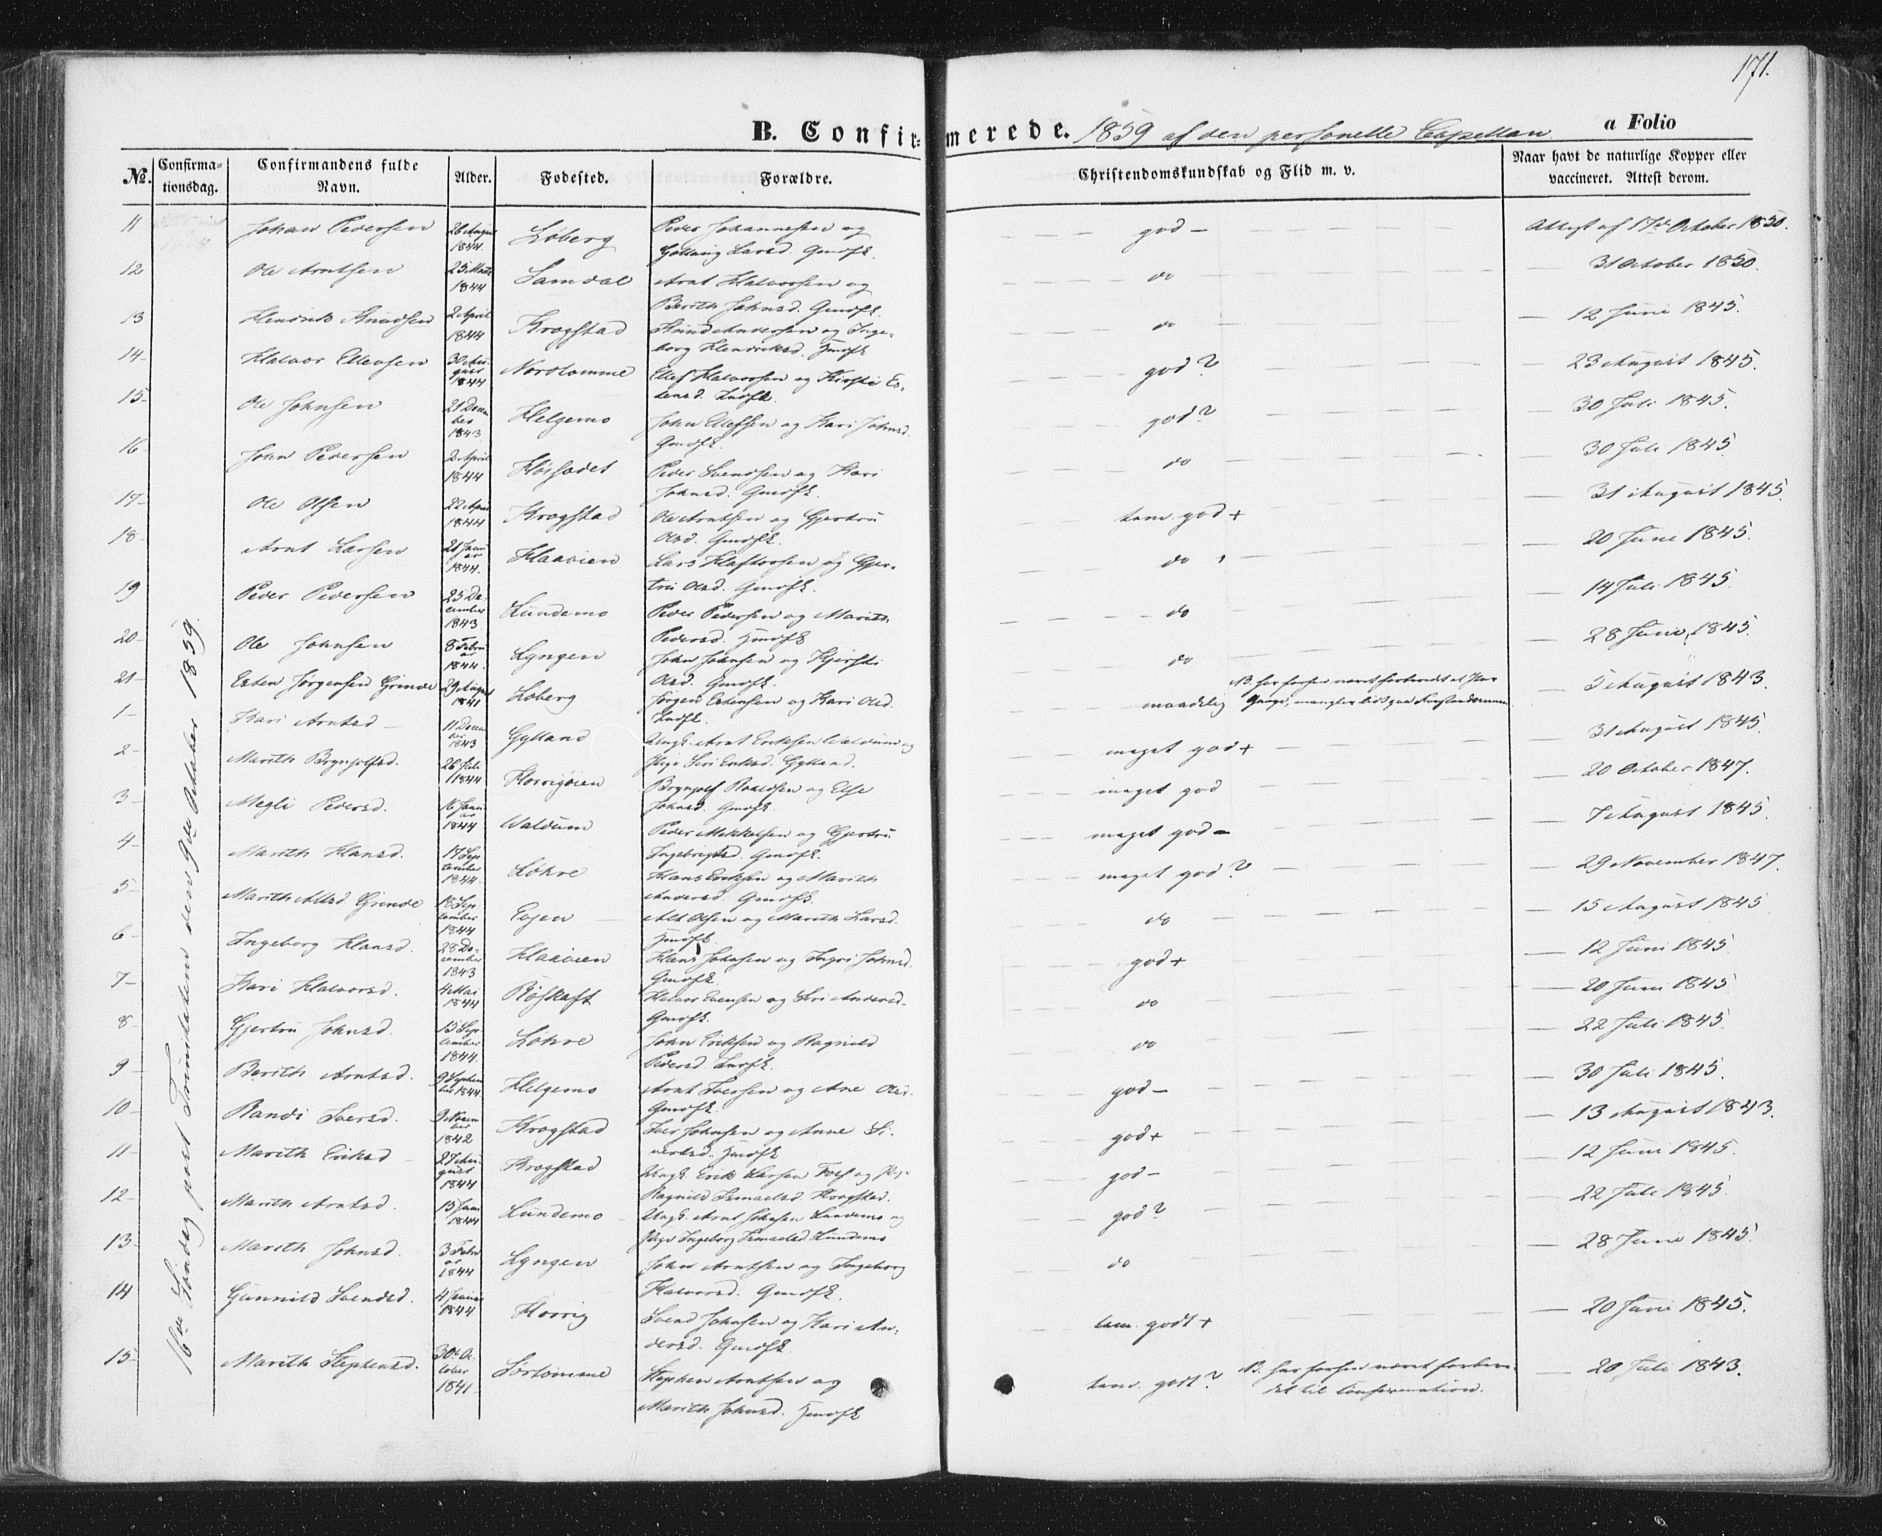 171.
B. Confirmerede. 1859 af den personelle Capellan a Folio
No. Confirmationsdag. Confirmandens fulde Navn. Alder. Fødested. Forældre. Christendomskundskab og Flid m. v. Naar havt de naturlige Kopper eller vaccineret. Attest derom.
16de Søndag post Trinitatem den 9de October 1859.
11 Johan Pedersen 26 August 1844. Løberg Peder Johannesen og Larsd. Gmdfk. god – Attest af 17de October 1850.
12 Ole Arntsen 25 Marts 1844 Samdal Arnt Halvorsen og Berith Johnsd. Gmdfk. do — 31 October 1850.
13 Hendrik Knudsen 2 April 1844 Krogstad Knud Andersen og Ingeborg Hendriksd. do — 12 Juni 1845.
14 – Halvor Ellevsen 30 August 1844 Nordtømme Ellef Halvorsen og Kirsti Estensd. god? — 23 August 1845.
15 – Ole Johnsen 21 December 1843 Helgemo John Ellefsen og Kari Johnsd. Gmdfk. god? — 30 Juli 1845.
16 – John Pedersen 2 April 1844 Peder Svendsen og Kari Johnsd. Gmdfk. do — 30 Juli 1845.
17 – Ole Olsen 22 April 1844 Krogstad Ole Arntsen og Gjertru Olsd. Gmdfk. tem. god + — 31 August 1845.
18 – Arnt Larsen 21 Januar 1844. Haavien Lars Hafvorsen og Gjertru Olsd. Gmdfk. do — 20 Juni 1845.
19 Peder Pedersen 25 December 1843 Lundemo Peder Pedersen og Marith Pedersd. do — 14 Juli 1845
20 – Ole Johnsen 8 Februar 1844. Lyngen John Johnsen og Kjersti Olsd. Gmdfk. do — 28 Juni 1845.
21 – Esten Jørgensen Grinde 29 August 1841 Løberg Jørgen Estensen og Kari Olsd. maadelig NB. har forhen været forberedt — 5 August 1843.
1 – Kari Arntsd – 11 December 1843 Gylland Ungk. Arnt Eriksen Waldum og Pige Siri Eriksd. Gylland. meget god + — 31 August 1845
2 – Marith Brynjolfsd. 26 Juli 1844 Horrigøien Brynjolf Roaldsen og Else Johnsd. Gmdfk. meget god — 20 October 1847.
3 – Megli Pedersd. 16 Januar 1844 Waldum Peder Mikkelsen og Gjertru Ingebrigtsd. Gmdfk. meget god – — 7 August 1845
4 – Marith Hansd. 17 September 1844. Løhre Hans Eriksen og Marith Andersd. Gmdfk. meget god? — 29 November 1847.
5 – Marith Alsd. Grinde 18 September 1844 Eggen Ald Olsen og Marith Larsd. do — 15 August 1845
6 – Ingeborg Hansd. 28 December 1843 Haavien Hans Johnsen og Ingri Johnsd. Gmdfk. god + — 12 Juni 1845
7 – Kari Halvorsd. 4 Mai 1844 Røskaft Halvor Evensen og Siri Andersd. Gmdfk. do — 20 Juni 1845
8 – Gjertru Johnsd. 15 September 1844. Løhre John Eriksen og Ragnild Pedersd. do — 22 Juli 1845.
9 – Berith Arntsd. 9 September 1844 Helgemo Arnt Iversen og Ane Olsd. Gmdfk. god – — 30 Juli 1845.
10 – Randi Iversd. 9 November 1842 Krogstad Iver Johnsen og Anne Sivertsd. god + — 13 August 1843.
11 – Marith Eriksd – 27 August 1844 Krogstad Ungk Erik Larsen og Pige Ragnild Ismaelsd. Krogstad. god – — 12 Juni 1845.
12 – Marith Arntsd. 15 Juni 1844 Lundemo Ungk. Arnt Johnsen Lundemo og Pige Ingeborg Ismaelsd. Lundemo god? — 22 Juli 1845.
13 – Marith Johnsd. 3 Februar 1844 Lyngen John Arntsen og Ingeborg Halvorsd. Gmdfk. do — 28 Juni 1845.
14 Gunnild Svendsd. 4 Januar 1844 Horrig Svend Johnsen og Kari Andersd. Gmdfk tem. godt + — 20 Juni 1845.
15 – Marith Stephensd. 30te October 1841 Sørtømme Stephen Arntsen og Marith Johnsd. tem. godt? NB. har forhen været forberedet til Confirmation. — 20 Juli 1843.